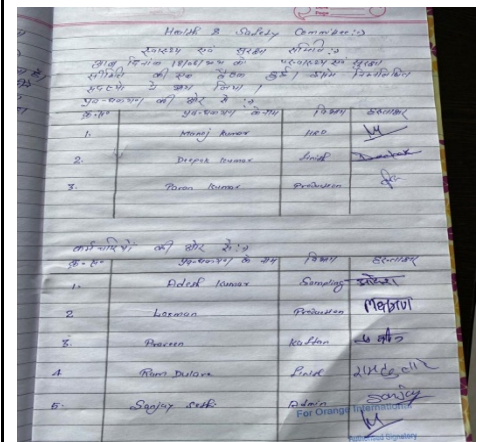 Health & Safety Committee:
स्वास्थ्य एवं सुरक्षा समिति :
आज दिनांक को स्वास्थ्य एवं सुरक्षा
समिति की एक बैठक हुई। जिसमें निम्नलिखित
सदस्यों ने भाग लिया।
प्रबन्धकगण की ओर से :
क्र०सं० प्रबन्धकगण के नाम विभाग हस्ताक्षर
1. Manoj Kumar HRD
2. Deepak Kumar Finish Deepak
3. Pavan Kumar Production
कर्मचारियों की ओर से :
क्र०सं० प्रबन्धकगण के नाम विभाग हस्ताक्षर
1. Adesh Kumar Sampling आदेश
2 Laxman Production
3. Praveen Kaftan
4 Ram Dulare Finish रामदुलारे
5. Sanjay Sethi Admin Sanjay
For Orange International
Authorised Signatory